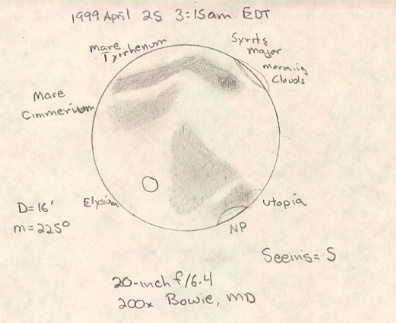 1999 April 25 3:15am EDT
Mare
Tyrrhenum
Syrtis
Major
morning
Clouds
Mare
Cimmerium
Elysium
Utopia
NP
D=16'
m=225°
Seeing= 5
20-inch f/6.4
200x Bowie, MD